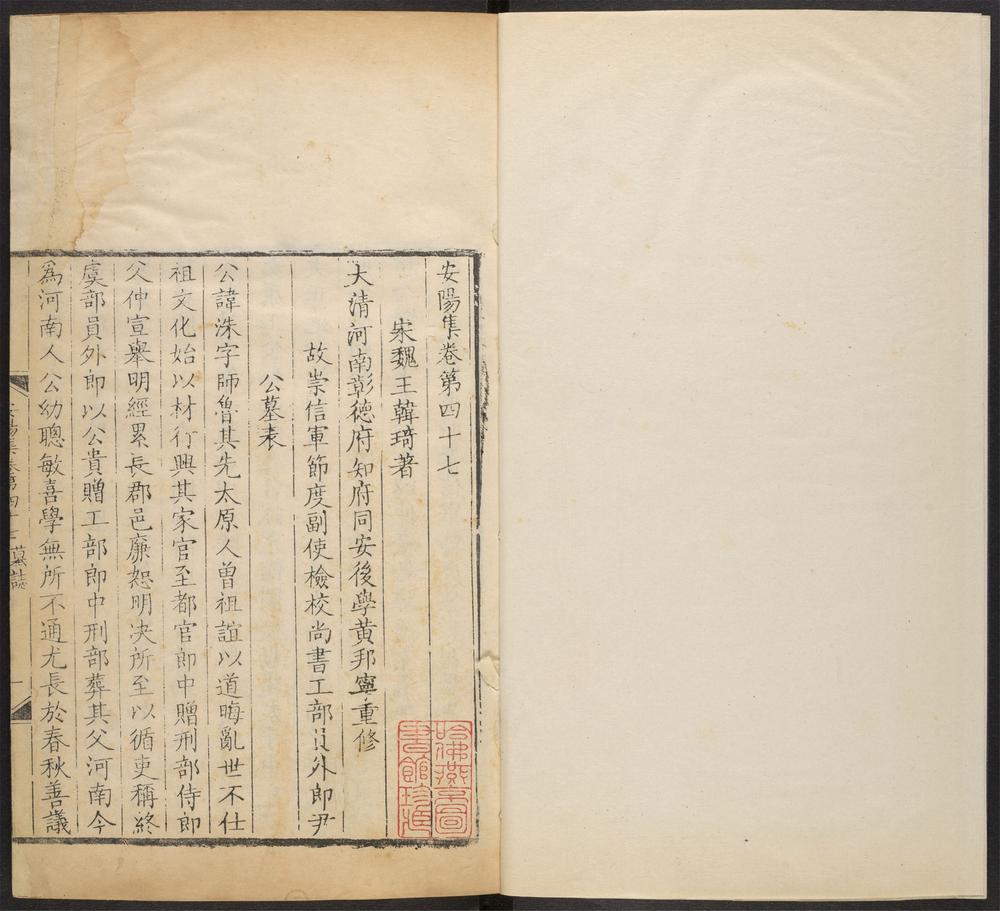 安陽集卷第四十七
宋魏王韓琦著
大清河南彰德府知府同安後學黃邦寧重修
故崇信軍節度副使檢校尚書工部員外郎尹
公墓表
公諱洙字師魯其先太原人曾祖誼以道晦亂世不仕
祖文化始以材行興其家官至都官郎中贈刑部侍郎
父仲宣舉明經累長郡邑廉恕明决所至以循吏稱終
虞部員外郎以公貴贈工部郎中刑部葬其父河南今
為河南人公幼聰敏喜學無所不通尤長於春秋善議
安陽集卷第四十七 墓誌
一
哈佛燕京圖
書館珍藏